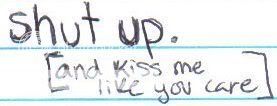 shut up.
[and kiss me
like you care]